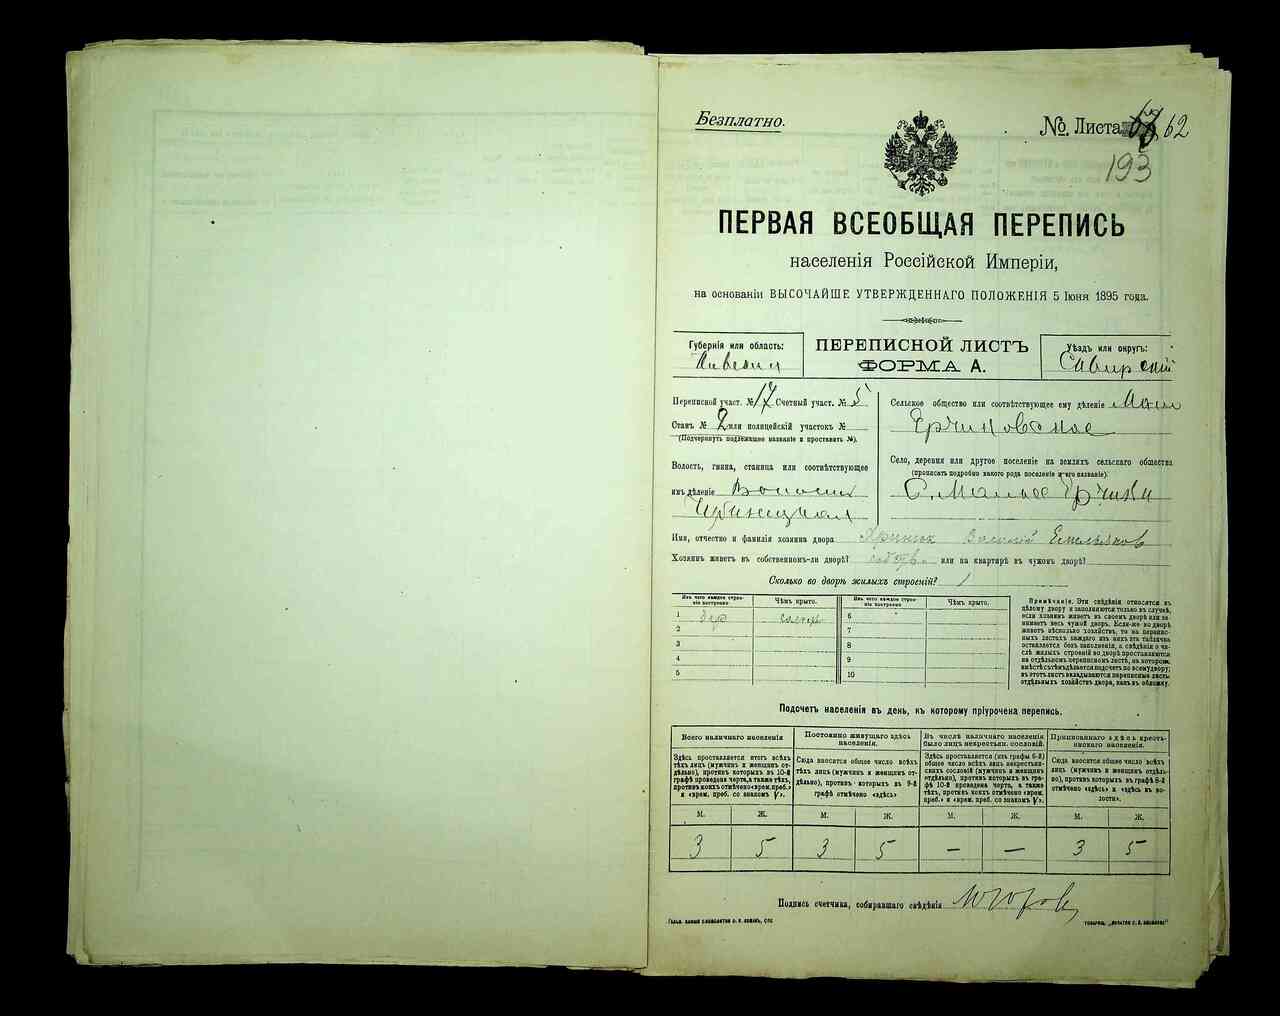 Безплатно.
№. Листа 62
193
ПЕРВАЯ ВСЕОБЩАЯ ПЕРЕПИСЬ
населенія Россійской Имперіи,
на основаніи ВЫСОЧАЙШЕ УТВЕРЖДЕННАГО ПОЛОЖЕНІЯ 5 Іюня 1895 года.
Губернія или область:
ПЕРЕПИСНОЙ ЛИСТЪ
ФОРМА А.
Уѣздъ или округъ:
Переписной участ. № 17 Счетный участ. № 5
Станъ № 2 или полицейскій участокъ №
(Подчеркнуть подлежащее названіе и проставить №).
Волость, гмина, станица или соотвѣтствующее
имъ дѣленіе Волость
Сельское общество или соотвѣтствующее ему дѣленіе Мало
Ерчиковское
Село, деревня или другое поселеніе на земляхъ сельскаго общества
(прописать подробно какого рода поселеніе и его названіе).
С. Малые Ерчики
Имя, отчество и фамилія хозяина двора Василій Емельяновъ
Хозяинъ живетъ въ собственномъ-ли дворѣ? собств. или на квартирѣ въ чужомъ дворѣ?
Сколько во дворѣ жилыхъ строеній? 1
Изъ чего каждое строеніе построено
Чѣмъ крыто.
Изъ чего каждое строеніе построено
Чѣмъ крыто.
1 дер 6
2 7
3 8
4 9
5 10
Примѣчаніе. Эти свѣдѣнія относятся къ
цѣлому двору и заполняются только въ случаѣ,
если хозяинъ живетъ въ своемъ дворѣ или занимаетъ
весь чужой дворъ. Если-же во дворѣ
живетъ нѣсколько хозяйствъ, то на переписныхъ
листахъ каждаго изъ нихъ эта табличка
оставляется безъ заполненія, а свѣдѣнія о числѣ
жилыхъ строеній во дворѣ проставляются
на отдѣльномъ переписномъ листѣ, на которомъ
вмѣстѣ съ тѣмъ дѣлается подсчетъ по всему двору;
въ этотъ листъ вкладываются переписные листы
отдѣльныхъ хозяйствъ двора, какъ въ обложку.
Подсчетъ населенія въ день, къ которому пріурочена перепись.
Всего наличнаго населенія
Постоянно живущаго здѣсь населенія.
Въ числѣ наличнаго населенія было лицъ некрестьян. сословій.
Приписаннаго здѣсь крестьянскаго населенія.
Здѣсь проставляется итогъ всѣхъ тѣхъ лицъ (мужчинъ и женщинъ отдѣльно), противъ которыхъ въ 10-й графѣ проведена черта, а также тѣхъ, противъ коихъ отмѣчено «врем. преб.» и «врем. преб. со знакомъ V».
Сюда вносится общее число всѣхъ тѣхъ лицъ (мужчинъ и женщинъ отдѣльно), противъ которыхъ въ 9-й графѣ отмѣчено «здѣсь»
Здѣсь проставляется (изъ графы 6-й) общее число всѣхъ лицъ некрестьянскихъ сословій (мужчинъ и женщинъ отдѣльно), противъ которыхъ въ графѣ 10-й проведена черта, а также тѣхъ, противъ коихъ отмѣчено «врем. преб.» и «врем. преб. со знакомъ V».
Сюда вносится общее число всѣхъ лицъ (мужчинъ и женщинъ отдѣльно), противъ которыхъ въ графѣ 8-й отмѣчено «здѣсь» и «здѣсь въ волости».
М. Ж. М. Ж. М. Ж. М. Ж.
3 5 3 5 — — 3 5
Подпись счетчика, собиравшаго свѣдѣнія